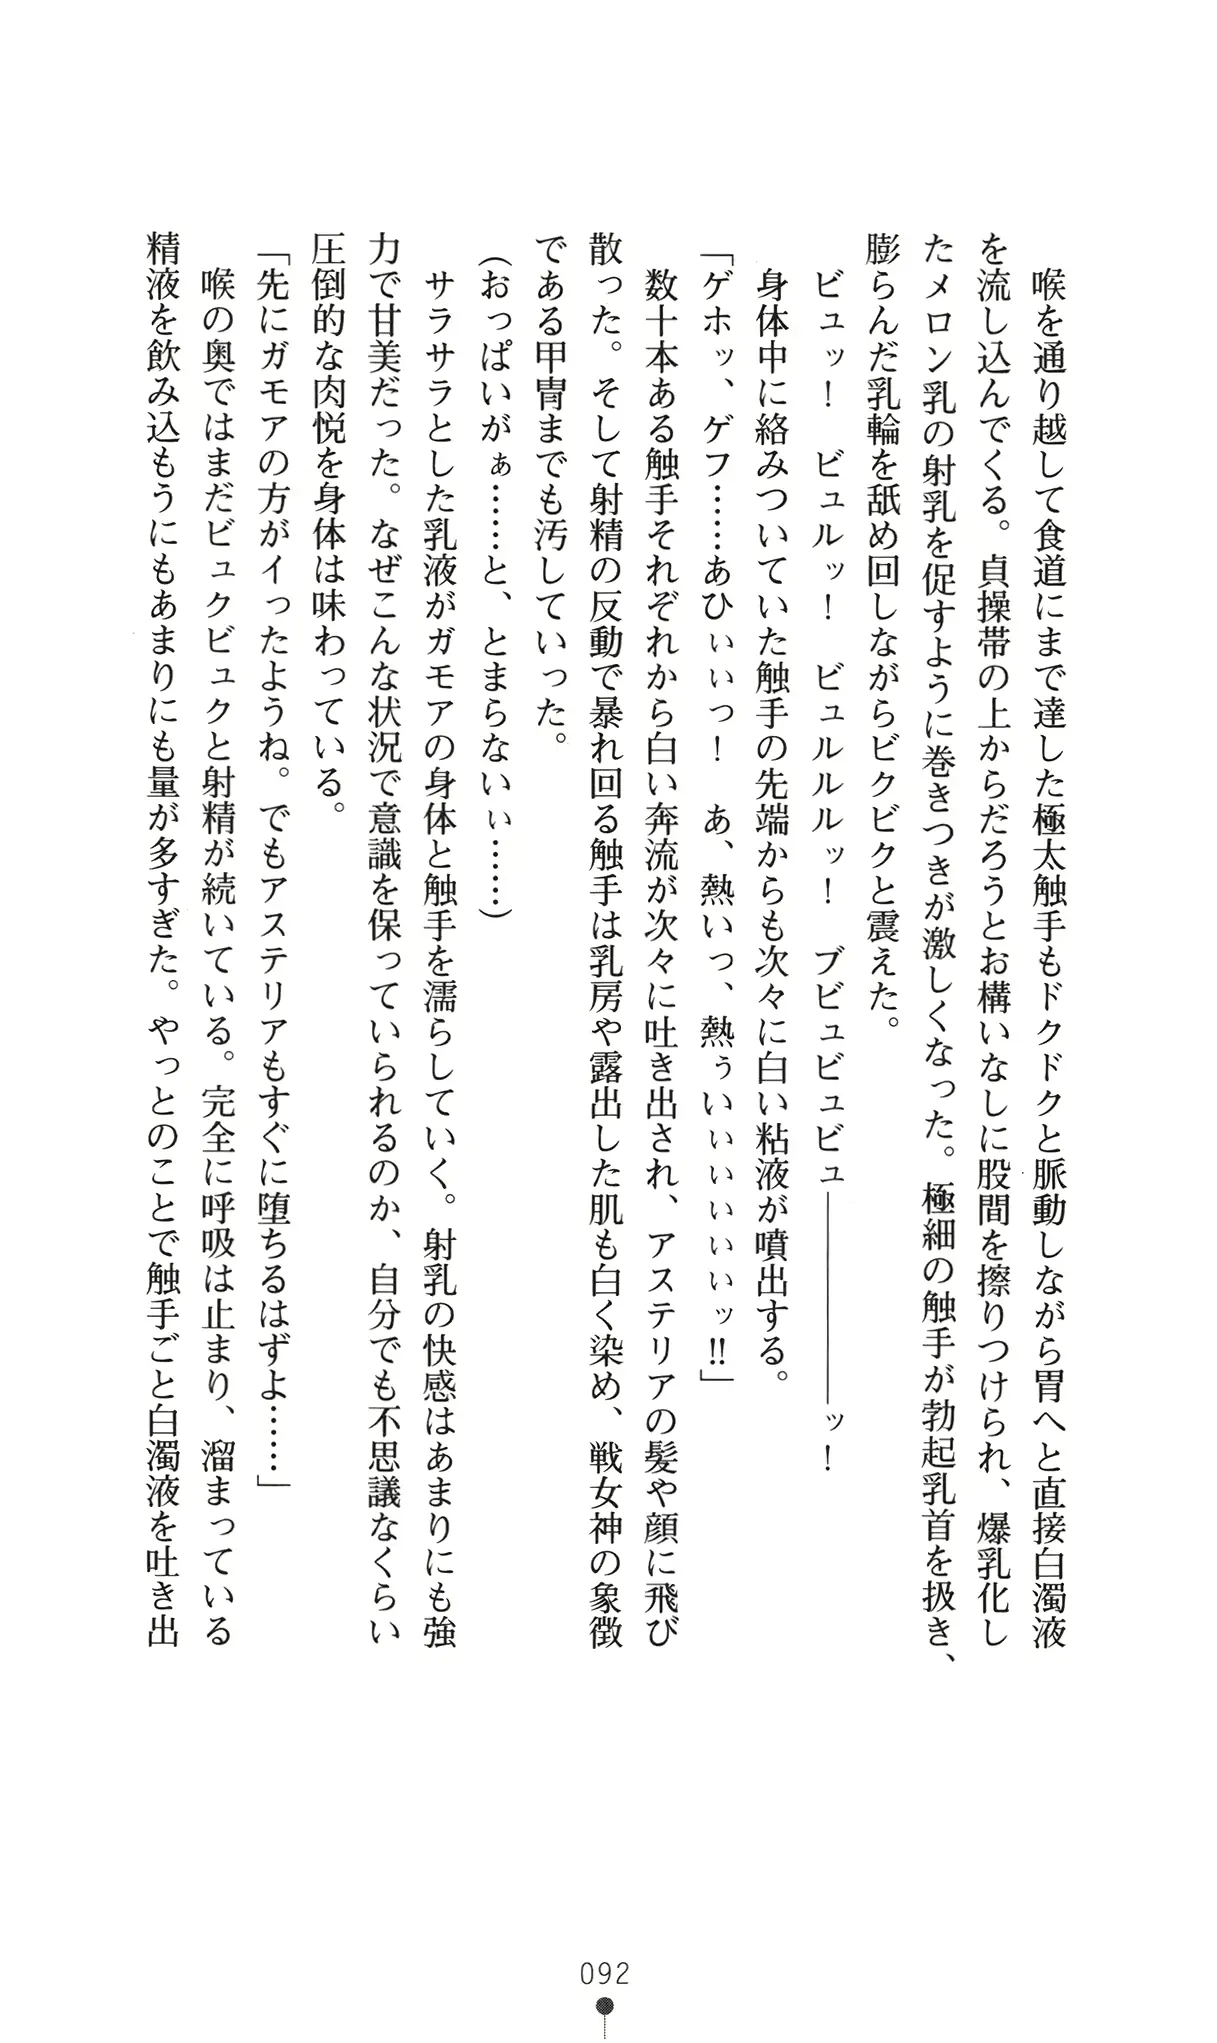 喉を通り越して食道にまで達した極太触手もドクドクと脈動しながら胃へと直接白濁液
を流し込んでくる。貞操帯の上からだろうとお構いなしに股間を擦りつけられ、爆乳化し
たメロン乳の射乳を促すように巻きつきが激しくなった。極細の触手が勃起乳首を扱き、
膨らんだ乳輪を舐め回しながらビクビクと震えた。
ビュッ！　ビュルッ！　ビュルルルッ！　ブビュビュビュ――――――ッ！
身体中に絡みついていた触手の先端からも次々に白い粘液が噴出する。
「ゲホッ、ゲフ……あひぃぃっ！　あ、熱いっ、熱ぅいぃぃぃぃぃッ!!」
数十本ある触手それぞれから白い奔流が次々に吐き出され、アステリアの髪や顔に飛び
散った。そして射精の反動で暴れ回る触手は乳房や露出した肌も白く染め、戦女神の象徴
である甲冑までも汚していった。
（おっぱいがぁ……と、とまらないぃ……）
サラサラとした乳液がガモアの身体と触手を濡らしていく。射乳の快感はあまりにも強
力で甘美だった。なぜこんな状況で意識を保っていられるのか、自分でも不思議なくらい
圧倒的な肉悦を身体は味わっている。
「先にガモアの方がイったようね。でもアステリアもすぐに堕ちるはずよ……」
喉の奥ではまだビュクビュクと射精が続いている。完全に呼吸は止まり、溜まっている
精液を飲み込もうにもあまりにも量が多すぎた。やっとのことで触手ごと白濁液を吐き出
092